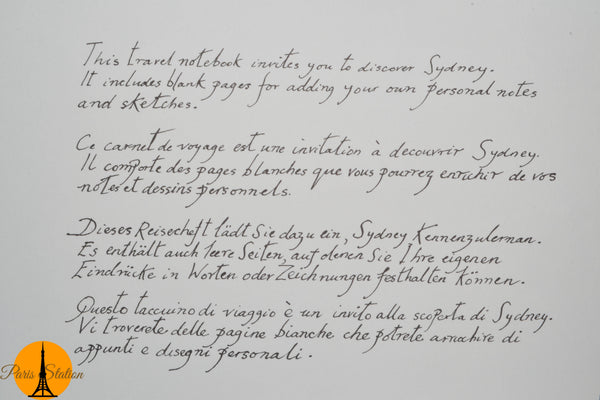 This travel notebook invites you to discover Sydney.
It includes blank pages for adding your own personal notes
and sketches.
Ce carnet de voyage est une invitation à decouvrir Sydney.
Il comporte des pages blanches que vous pourrez enrichir de vos
notes et dessins personnels.
Dieses Reisecheft lädt Sie dazu ein, Sydney Kennenzulernan.
Es enthält auch leere Seiten, auf denen Sie Ihre eigenen
Eindrücke in Worten oder Zeichnungen festhalten können.
Questo taccuino di viaggio è un invito alla scoperta di Sydney.
Vi troverete delle pagine bianche che potrete arrichire di
appunti e disegni personali.
Paris Station